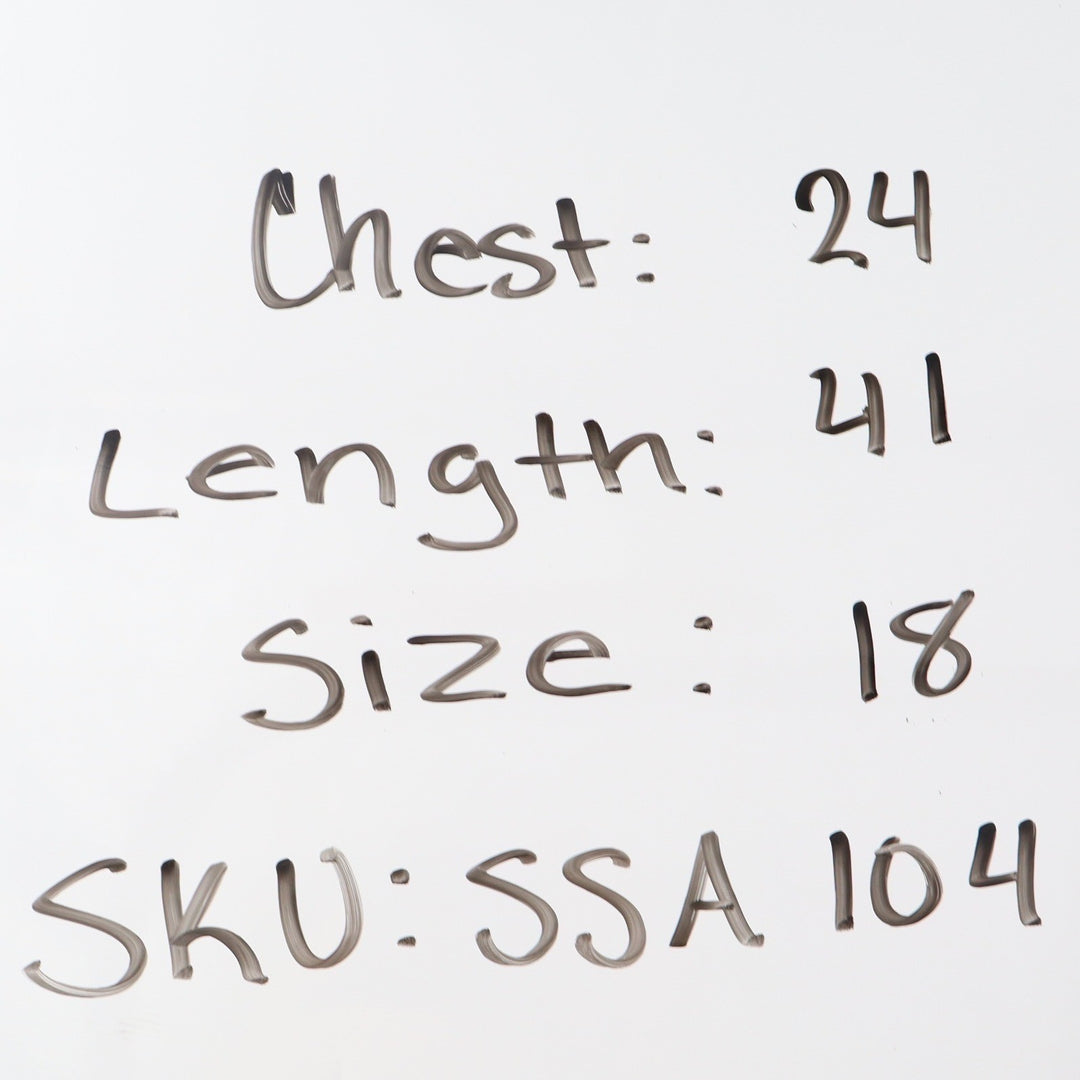 Chest: 24
Length: 41
Size: 18
SKU: SSA 104